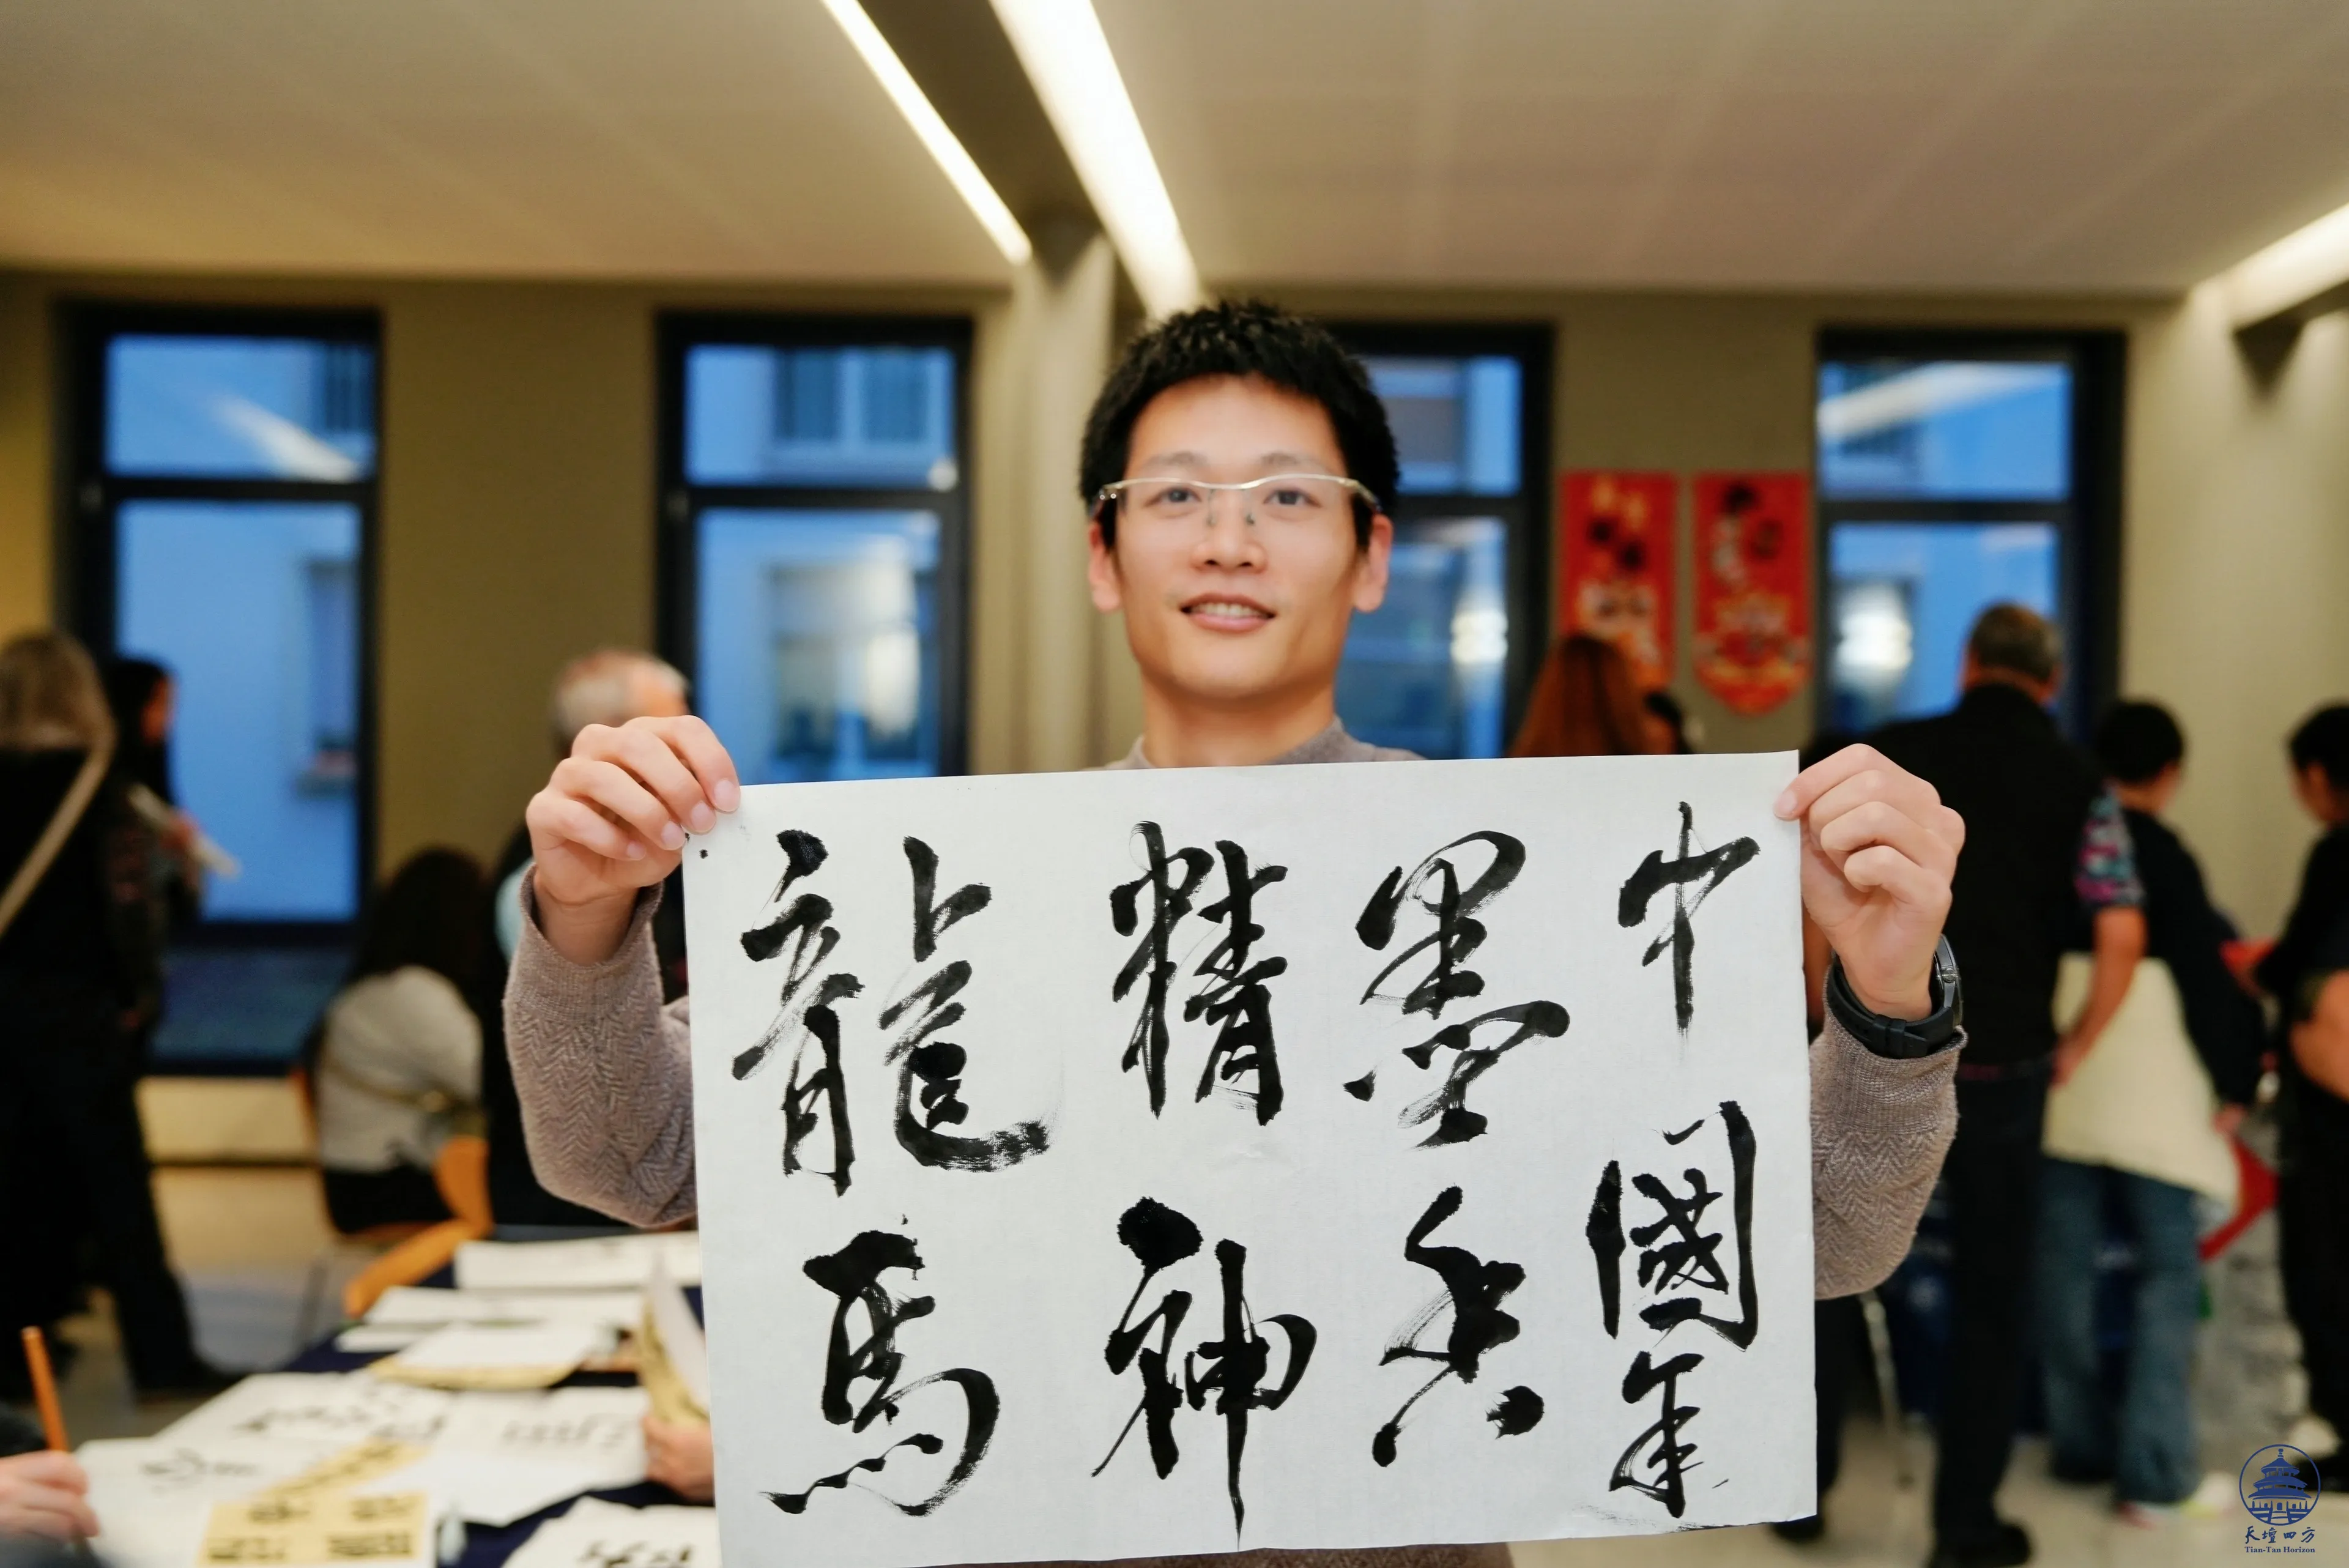 中國年
墨
精神
龍馬
天壇四方
Tian-Tan Horizon